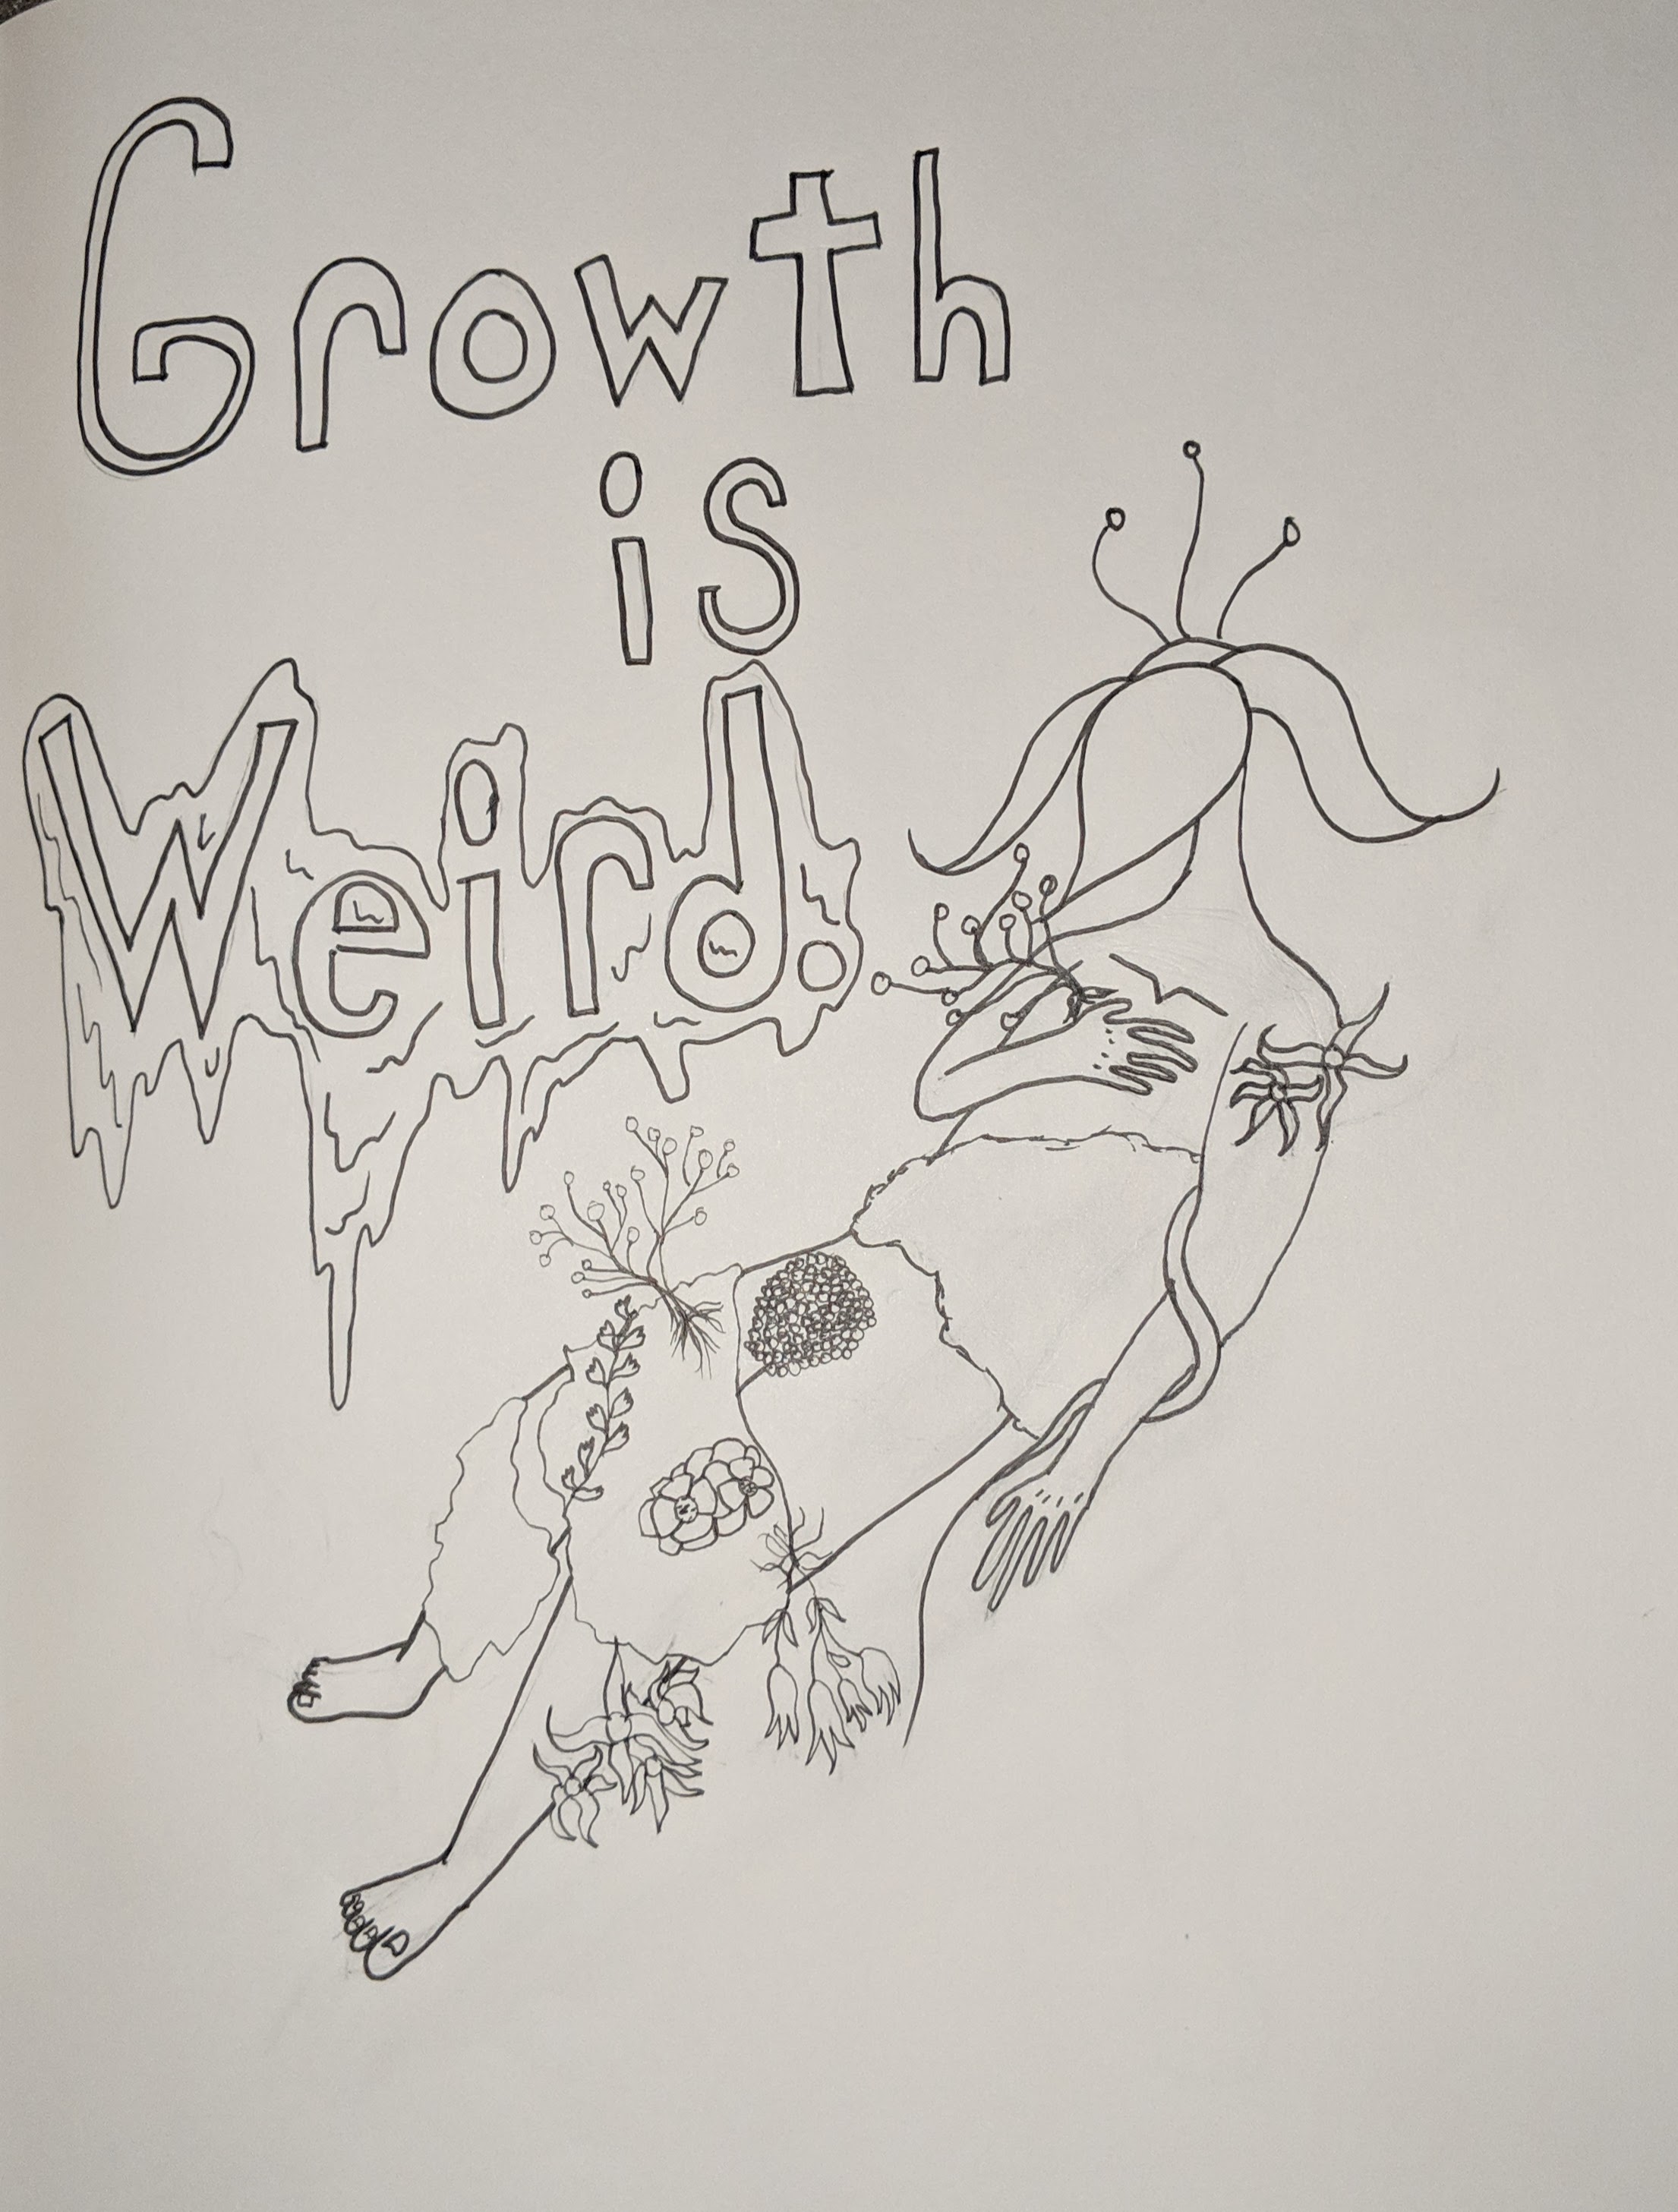 Growth
is
Weird.